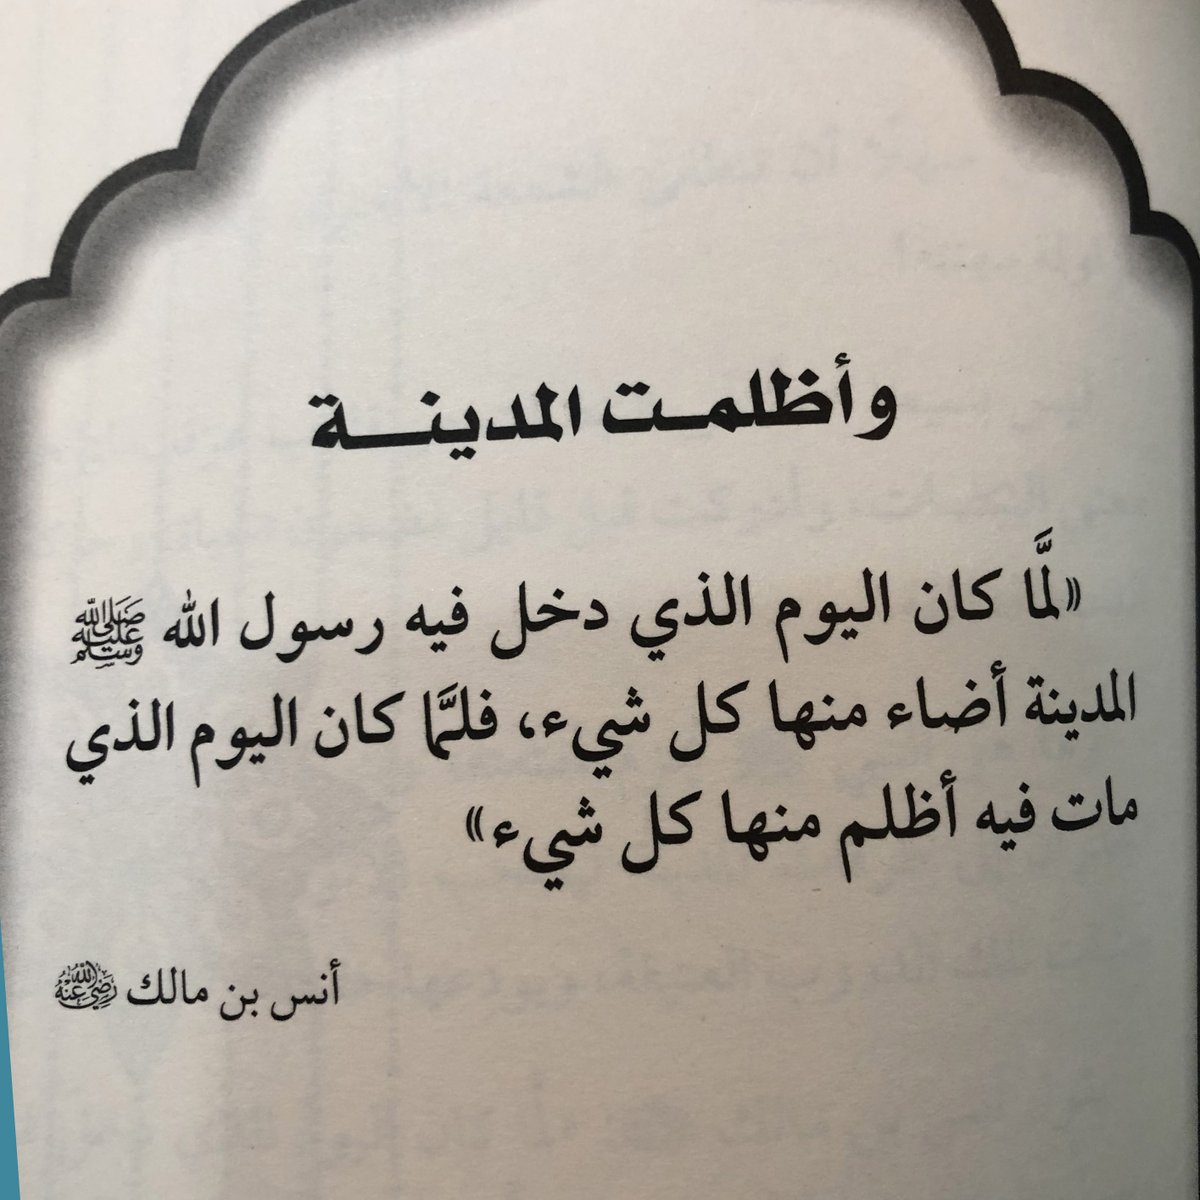 وأظلمت المدينة
«لمَّا كان اليوم الذي دخل فيه رسول الله ﷺ
المدينة أضاء منها كل شيء، فلمَّا كان اليوم الذي
مات فيه أظلم منها كل شيء»
أنس بن مالك رَضِيَ اللَّهُ عَنْهُ